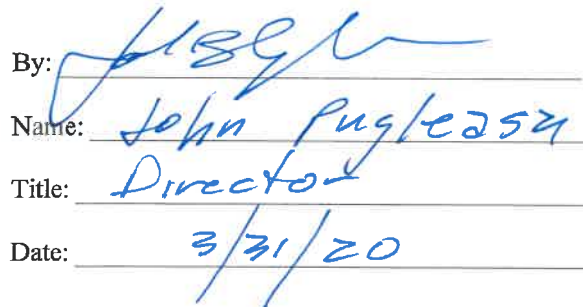 By:
Name: John Pugleasa
Title: Director
Date: 3/31/20